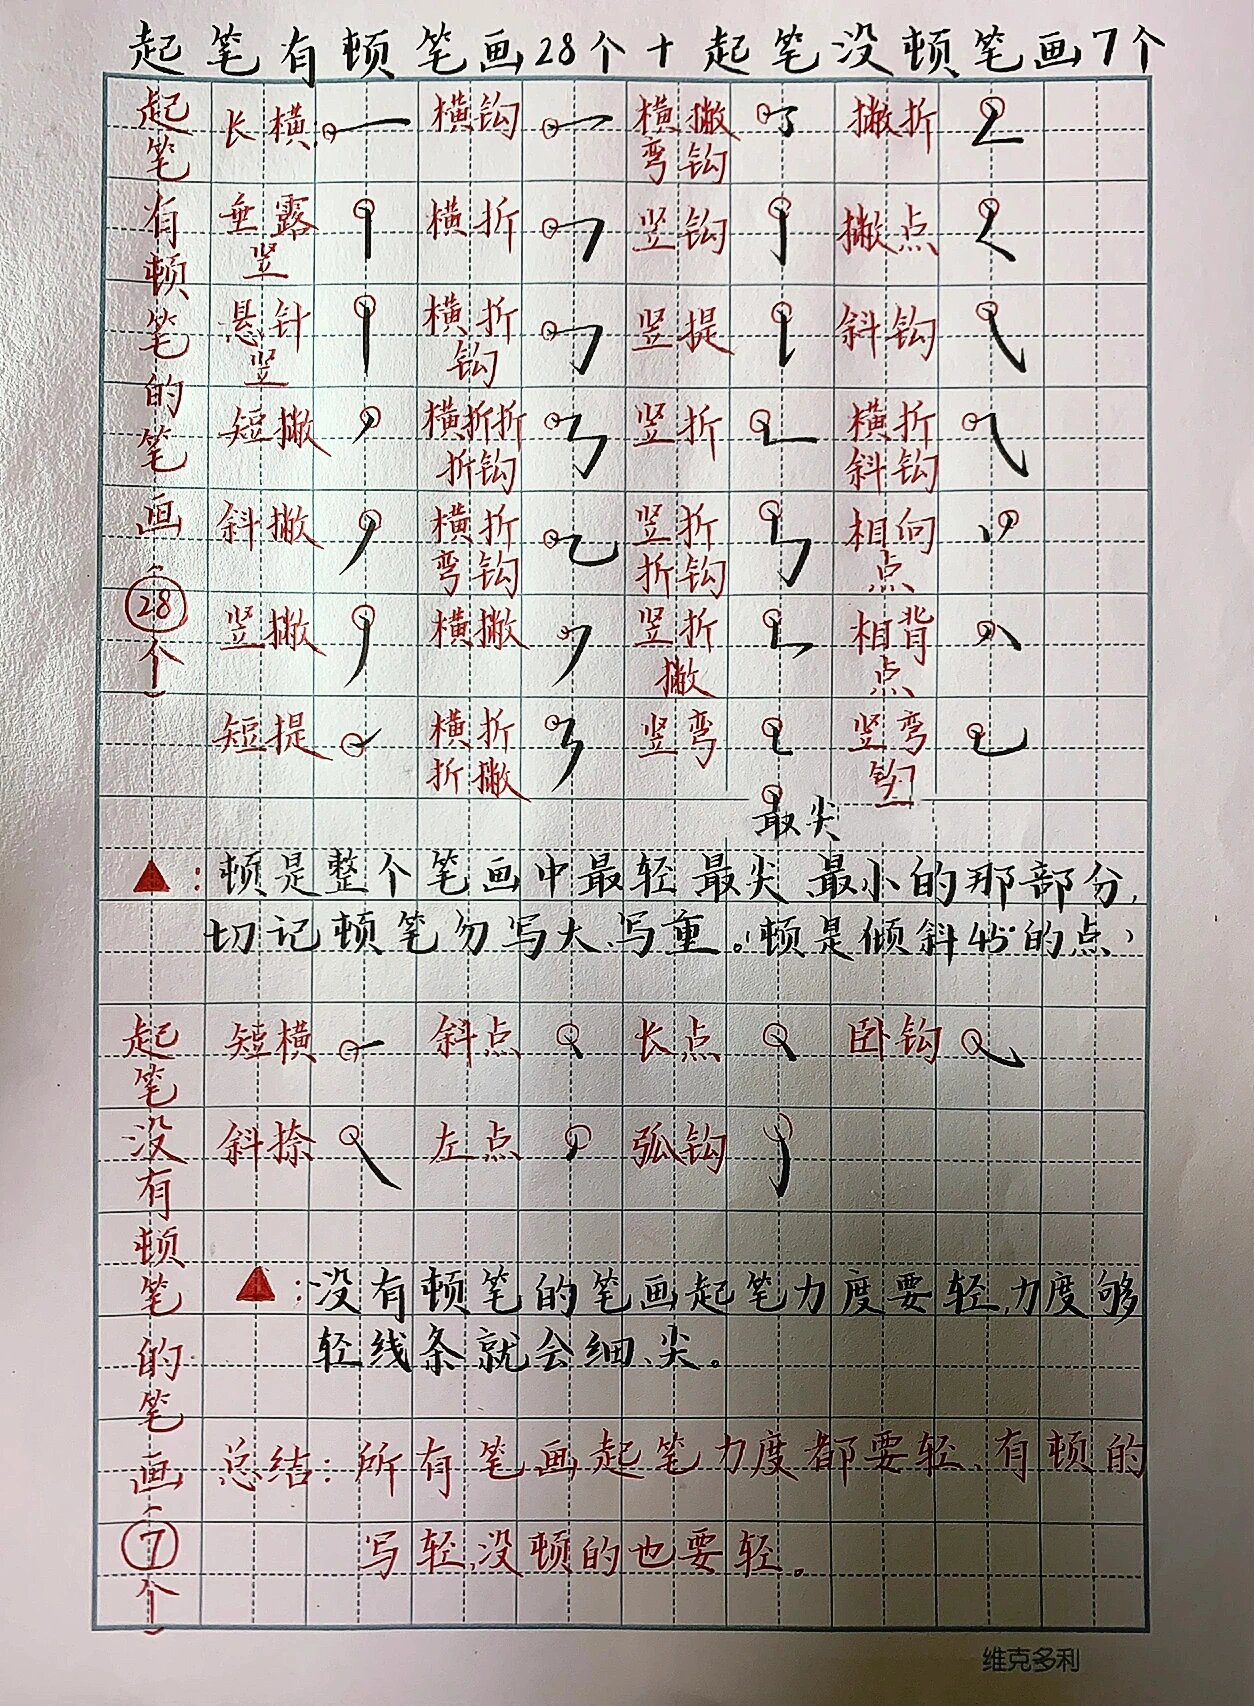 起笔有顿笔画28个+起笔没顿笔画7个
起笔有顿笔的笔画(28个)
长横: 横钩 横撇弯钩 撇折
垂露竖 横折 竖钩 撇点
悬针竖 横折钩 竖提 斜钩
短撇 横折折折钩 竖折 横折斜钩
斜撇 横折弯钩 竖折折钩 相向点
竖撇 横撇 竖折撇 相背点
短提 横折折撇 竖弯 竖弯钩
最尖
▲:顿是整个笔画中最轻最尖最小的那部分,
切记顿笔勿写大、写重。(顿是倾斜45°的点)
起笔没有顿笔的笔画(7个)
短横 斜点 长点 卧钩
斜捺 左点 弧钩
▲:没有顿笔的笔画起笔力度要轻,力度够
轻线条就会细、尖。
总结:所有笔画起笔力度都要轻、有顿的
写轻,没顿的也要轻。
维克多利